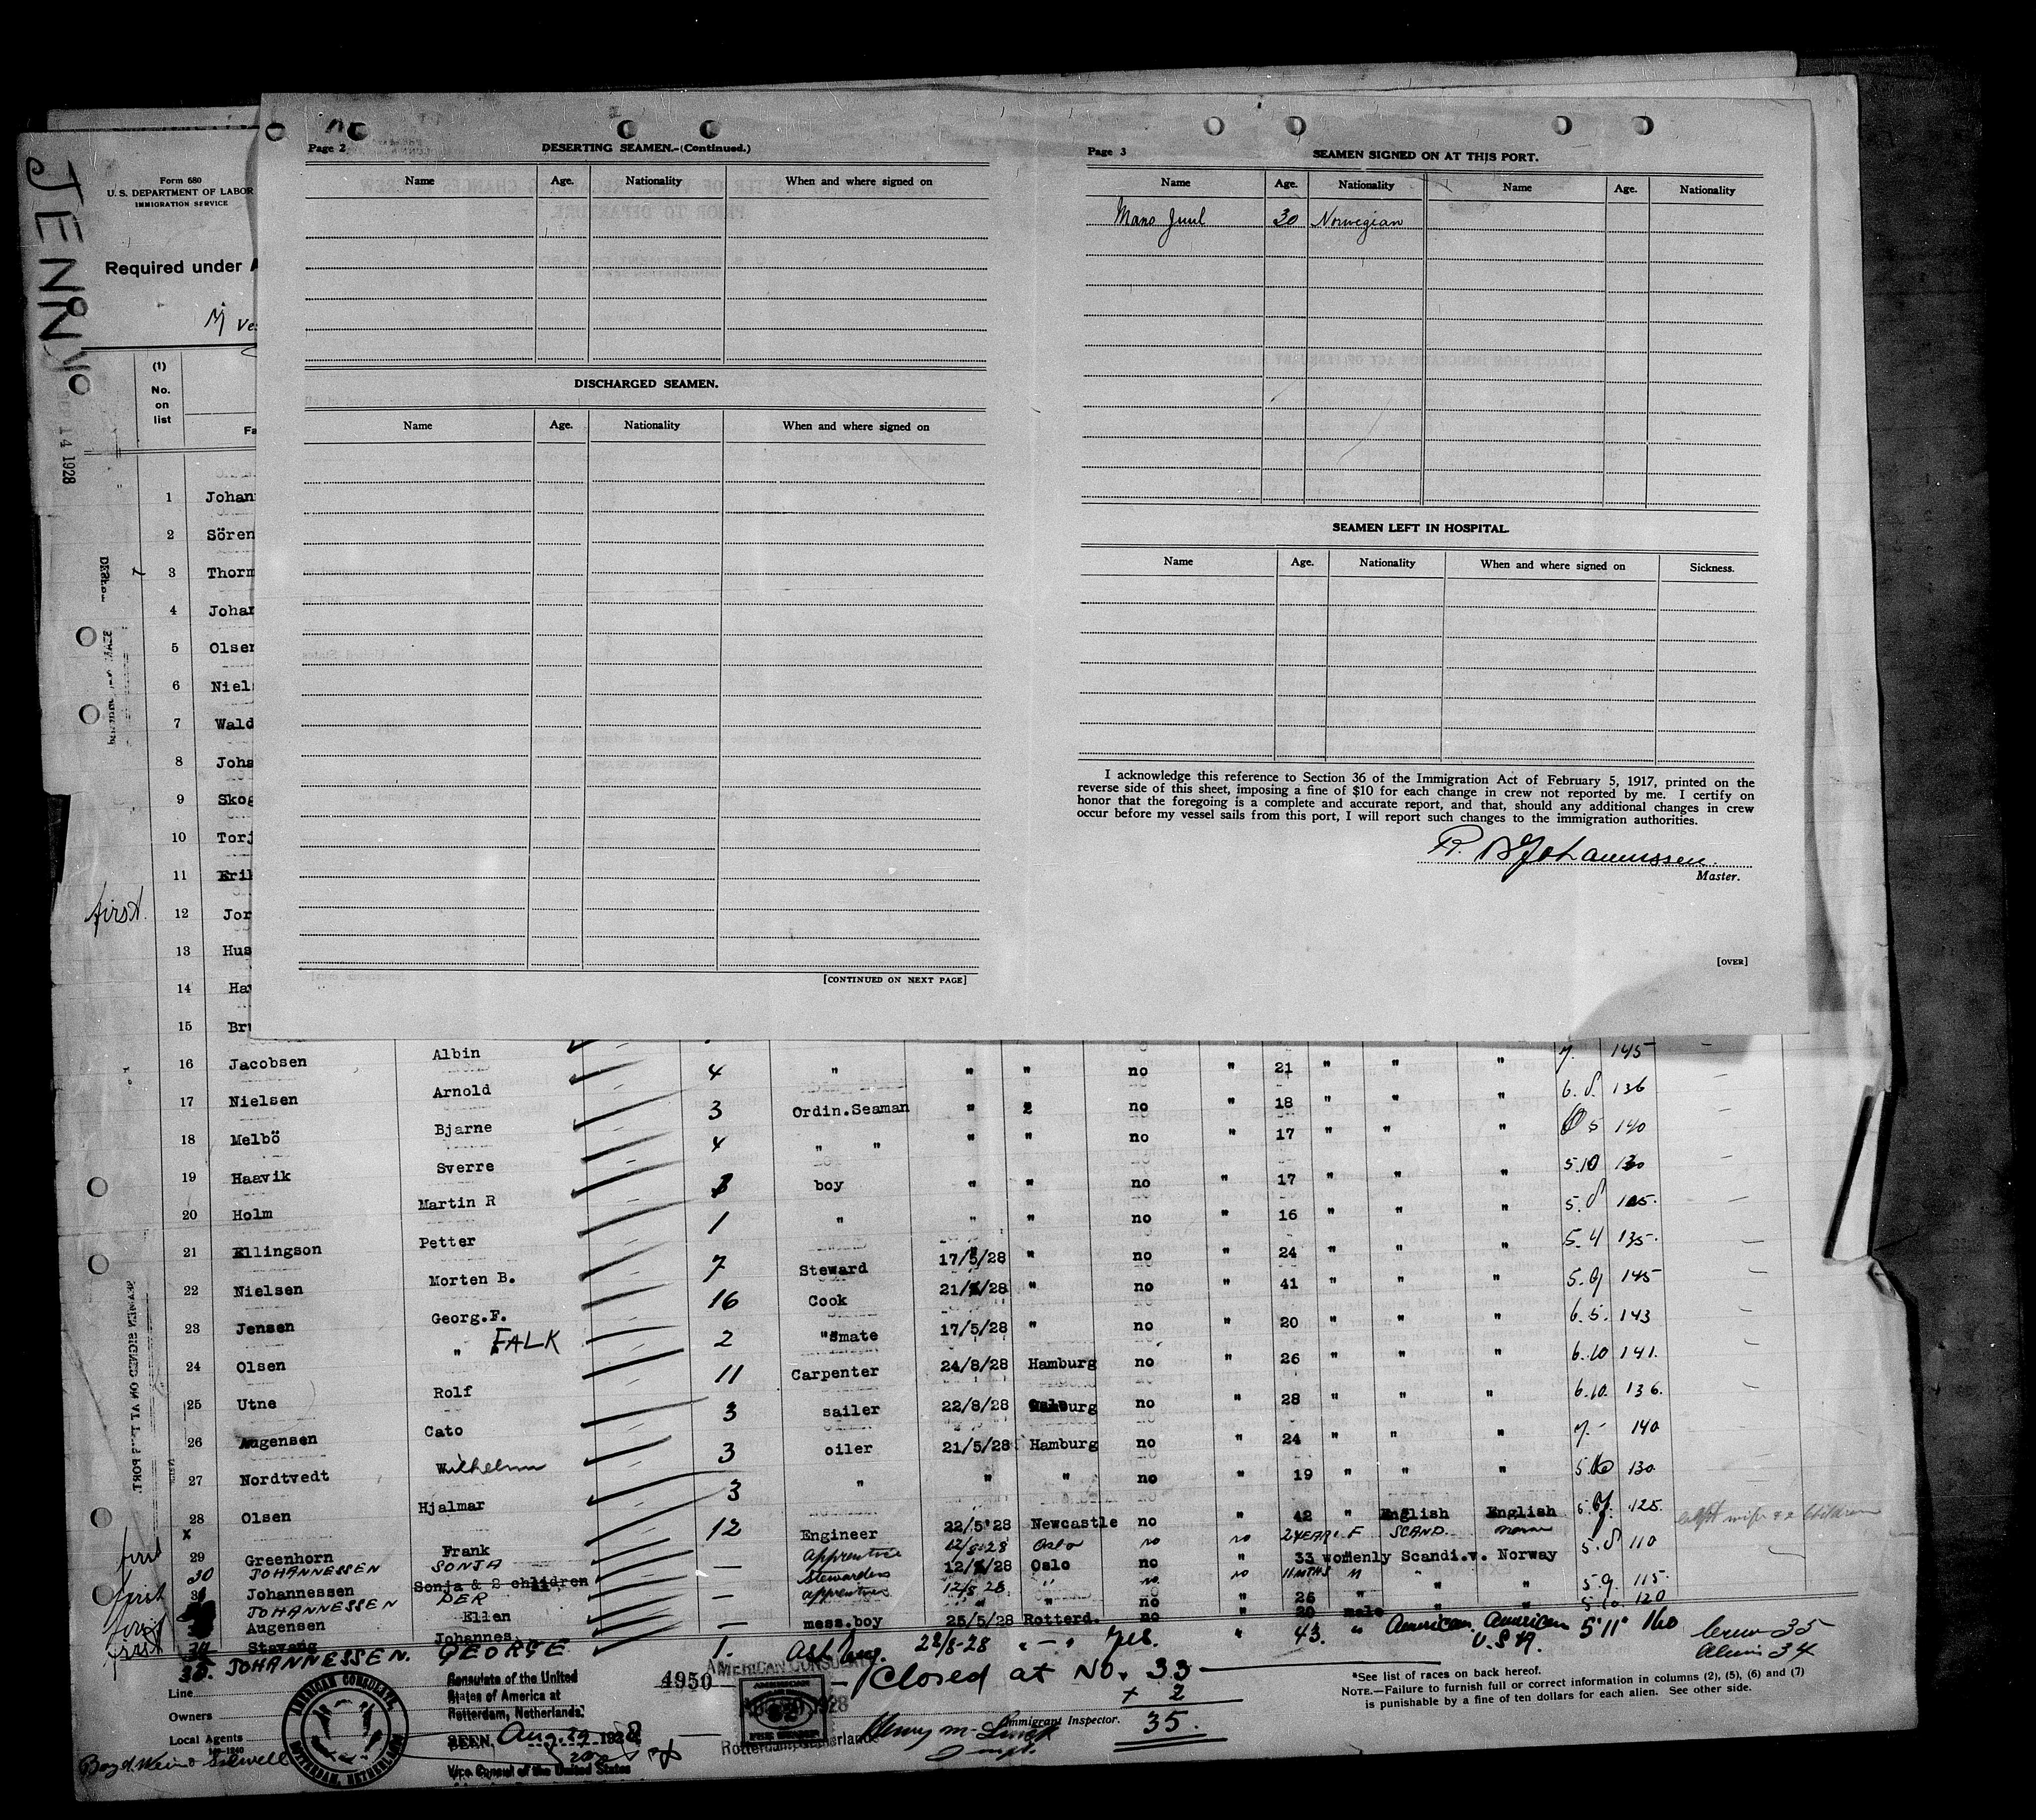 JENNY
SEP 14 1928
Form 680
U. S. DEPARTMENT OF LABOR
IMMIGRATION SERVICE
Required under
(1)
No.
on
list
1 Johan
2 Sören
3 Thorm
4 Johan
5 Olsen
6 Niels
7 Wald
8 Joha
9 Skog
10 Torj
11 Erik
first 12 Jor
13 Hus
14 Ha
15 Br
Page 2
DESERTING SEAMEN.-(Continued.)
Name Age. Nationality When and where signed on
DISCHARGED SEAMEN.
Name Age. Nationality When and where signed on
[CONTINUED ON NEXT PAGE]
Page 3
SEAMEN SIGNED ON AT THIS PORT.
Name Age. Nationality Name Age. Nationality
Juul 30 Norwegian
SEAMEN LEFT IN HOSPITAL.
Name Age. Nationality When and where signed on Sickness.
I acknowledge this reference to Section 36 of the Immigration Act of February 5, 1917, printed on the
reverse side of this sheet, imposing a fine of $10 for each change in crew not reported by me. I certify on
honor that the foregoing is a complete and accurate report, and that, should any additional changes in crew
occur before my vessel sails from this port, I will report such changes to the immigration authorities.
Johannessen
Master.
[OVER]
16 Jacobsen Albin 4 " " " no " 21 " " " 7. 145
17 Nielsen Arnold 3 Ordin.Seaman " " no " 18 " " " 6. 8. 136
18 Melbö Bjarne 4 " " " " no " 17 " " " 5 140
19 Haavik Sverre boy " " no " 17 " " " 5.10 130
20 Holm Martin R 1 " " " no " 16 " " " 5.8 105.
21 Ellingson Petter 7 Steward 17/5/28 " no " 24 " " " 5.4 135.
22 Nielsen Morten B. 16 Cook 21/5/28 " no " 41 " " " 5.9 145
23 Jensen Georg.F. 2 " mate 17/5/28 " no " 20 " " " 6.5. 143
24 Olsen " FALK 11 Carpenter 24/8/28 Hamburg no " 26 " " " 6.10 141.
25 Utne Rolf 3 sailer 22/8/28 no " 28 " " " 6.10. 136.
26 Augensen Cato 3 oiler 21/5/28 Hamburg no " 24 " " " 7.- 140
27 Nordtvedt Wilhelm 3 " " " no " 19 " " " 130
28 Olsen Hjalmar 12 Engineer 22/5/28 Newcastle no " 42 " English English 125.
first 29 Greenhorn Frank
30 JOHANNESSEN SONJA apprentice 12/8-28 Oslo no no 2 YEARS F SCAND. 5.8 110
first Johannessen Sonja & 2 children — Stewardess 12/ /28 Oslo no " 33 womenly Scandi.v. Norway
JOHANNESSEN PER apprentice 12/8 28 " no no 11 MTHS M " " 5.9. 115.
first Augensen Ellen — " " no " 26 " " " 120
first Stavang Johannes mess.boy 25/5/28 Rotterd. no " 20 male
35. JOHANNESSEN. GEORGE 1. Ast Eng. 28/8-28 " - " yes. " 43. " American American U.S.A. 5'11" 160
Crew 35
Aliens 34
Line
Owners
Local Agents
AMERICAN CONSULATE
ROTTERDAM, NETHERLANDS
Consulate of the United
States of America at
Rotterdam, Netherlands.
SEEN, Aug. 29 1928
Vice Consul of the United States
4950
AMERICAN CONSULATE
1928
Rotterdam, Netherlands
Closed at No. 33
+ 2
35.
Henry M.
Immigrant Inspector.
*See list of races on back hereof.
NOTE.—Failure to furnish full or correct information in columns (2), (5), (6) and (7)
is punishable by a fine of ten dollars for each alien. See other side.